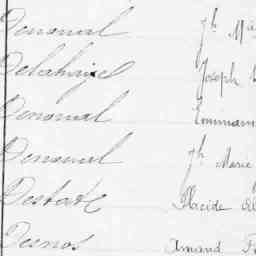 Denoual Jh Ma
Delahaye Joseph
Denoual Emmanu
Denoual Jh Marie
Destate Placide Al
Desnos Amand F